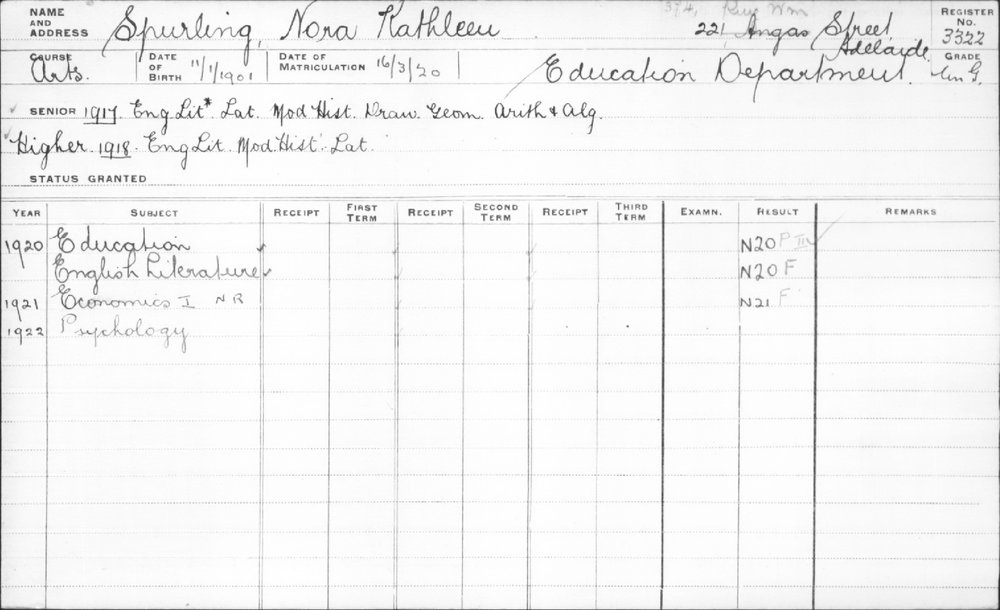 NAME AND ADDRESS Spurling, Nora Kathleen 374, King Wm 221, Angas Street, Adelaide. REGISTER No. 3322
COURSE Arts. DATE OF BIRTH 11/1/1901 DATE OF MATRICULATION 16/3/20 Education Department. GRADE
SENIOR 1917. Eng Lit* Lat. Mod Hist. Draw. Geom. Arith & Alg.
Higher. 1918. Eng Lit. Mod Hist. Lat.
STATUS GRANTED
YEAR SUBJECT RECEIPT FIRST TERM RECEIPT SECOND TERM RECEIPT THIRD TERM EXAMN. RESULT REMARKS
1920 Education ✓ N20 P III
English Literature ✓ N20 F
1921 Economics I NR N21 F
1922 Psychology